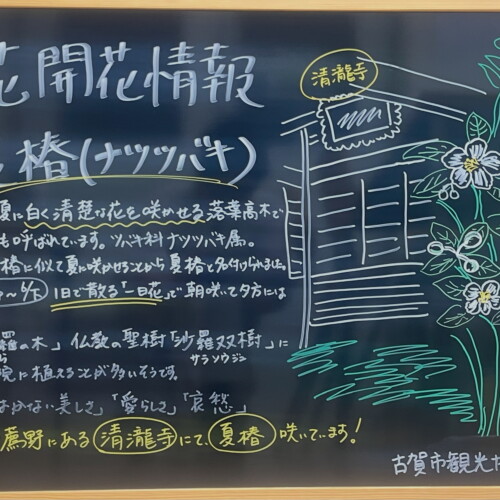 花開花情報
清瀧寺
椿(ナツツバキ)
夏に白く清楚な花を咲かせる落葉高木で
も呼ばれています。ツバキ科ナツツバキ属。
椿に似て夏に咲かせることから夏椿と名付けられました。
1日で散る「一日花」で朝咲いて夕方には
羅の木」仏教の聖樹「沙羅双樹」に
サラソウジュ
院に植えることが多いそうです。
はかない美しさ」「愛らしさ」「哀愁」
薦野にある清瀧寺にて、夏椿咲いています!
古賀市観光